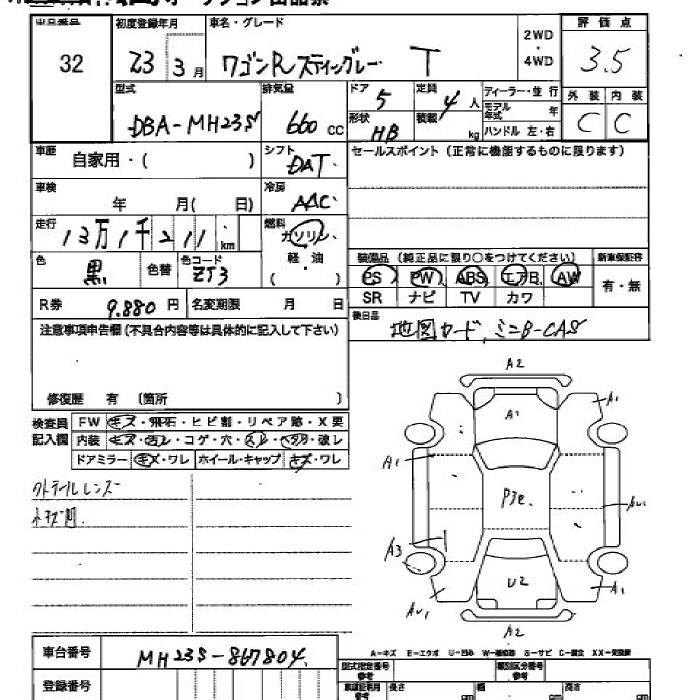 出品番号 初度登録年月 車名・グレード 2WD・4WD 評価点
32 23 3月 ワゴンR スティングレー T 3.5
型式 排気量 ドア 定員 ディーラー・並行 外装 内装
DBA-MH23S 660cc 5 4人 モデル年式 年 C C
形状 HB 積載 kg ハンドル 左・右
車歴 自家用・( ) シフト DAT セールスポイント(正常に機能するものに限ります)
車検 年 月( 日) 冷房 AAC
走行 13万1千211km 燃料 ガソリン・軽油 ( )
色 黒 色替 色コード ZJ3
装備品(純正品に限り○をつけてください) 新車保証書
PS PW ABS エアB AW 有・無
SR ナビ TV カワ
R券 9.880円 名変期限 月 日
後日品 地図カード、ミニB-CAS
注意事項申告欄(不具合内容等は具体的に記入して下さい)
修復歴 有 (箇所 )
検査員記入欄
FW キズ・飛石・ヒビ割・リペア跡・X要
内装 キズ・汚レ・コゲ・穴・スレ・ヘタリ・破レ
ドアミラー キズ・ワレ ホイール・キャップ キズ・ワレ
A2
A1
A1
A1
P3e
A3
U2
A1
A2
A-キズ E-エクボ U-凹ミ W-補修跡 S-サビ C-腐食 XX-交換済
車台番号 MH23S-867804
登録番号
型式指定番号 類別区分番号
長さ cm 幅 cm 高さ cm